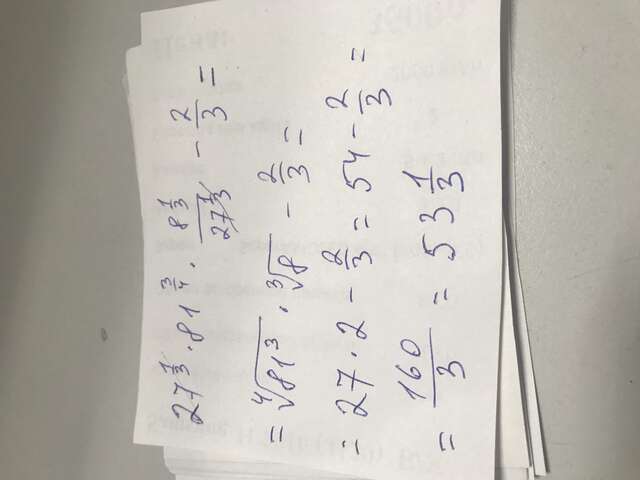 27^{1/3} · 81^{3/4} · \frac{8^{1/3}}{27^{1/3}} - \frac{2}{3} =
= \sqrt[4]{81^3} · \sqrt[3]{8} - \frac{2}{3} =
= 27 · 2 - \frac{2}{3} = 54 - \frac{2}{3} =
= \frac{160}{3} = 53 \frac{1}{3}